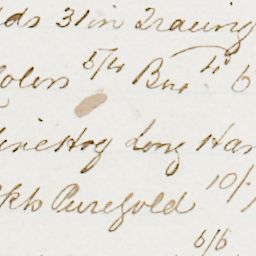 ds 31 in Tracing
Colors 5/4 Bro 4" 6
ine Hog Long Han
kts Pure gold 10/-
6/6